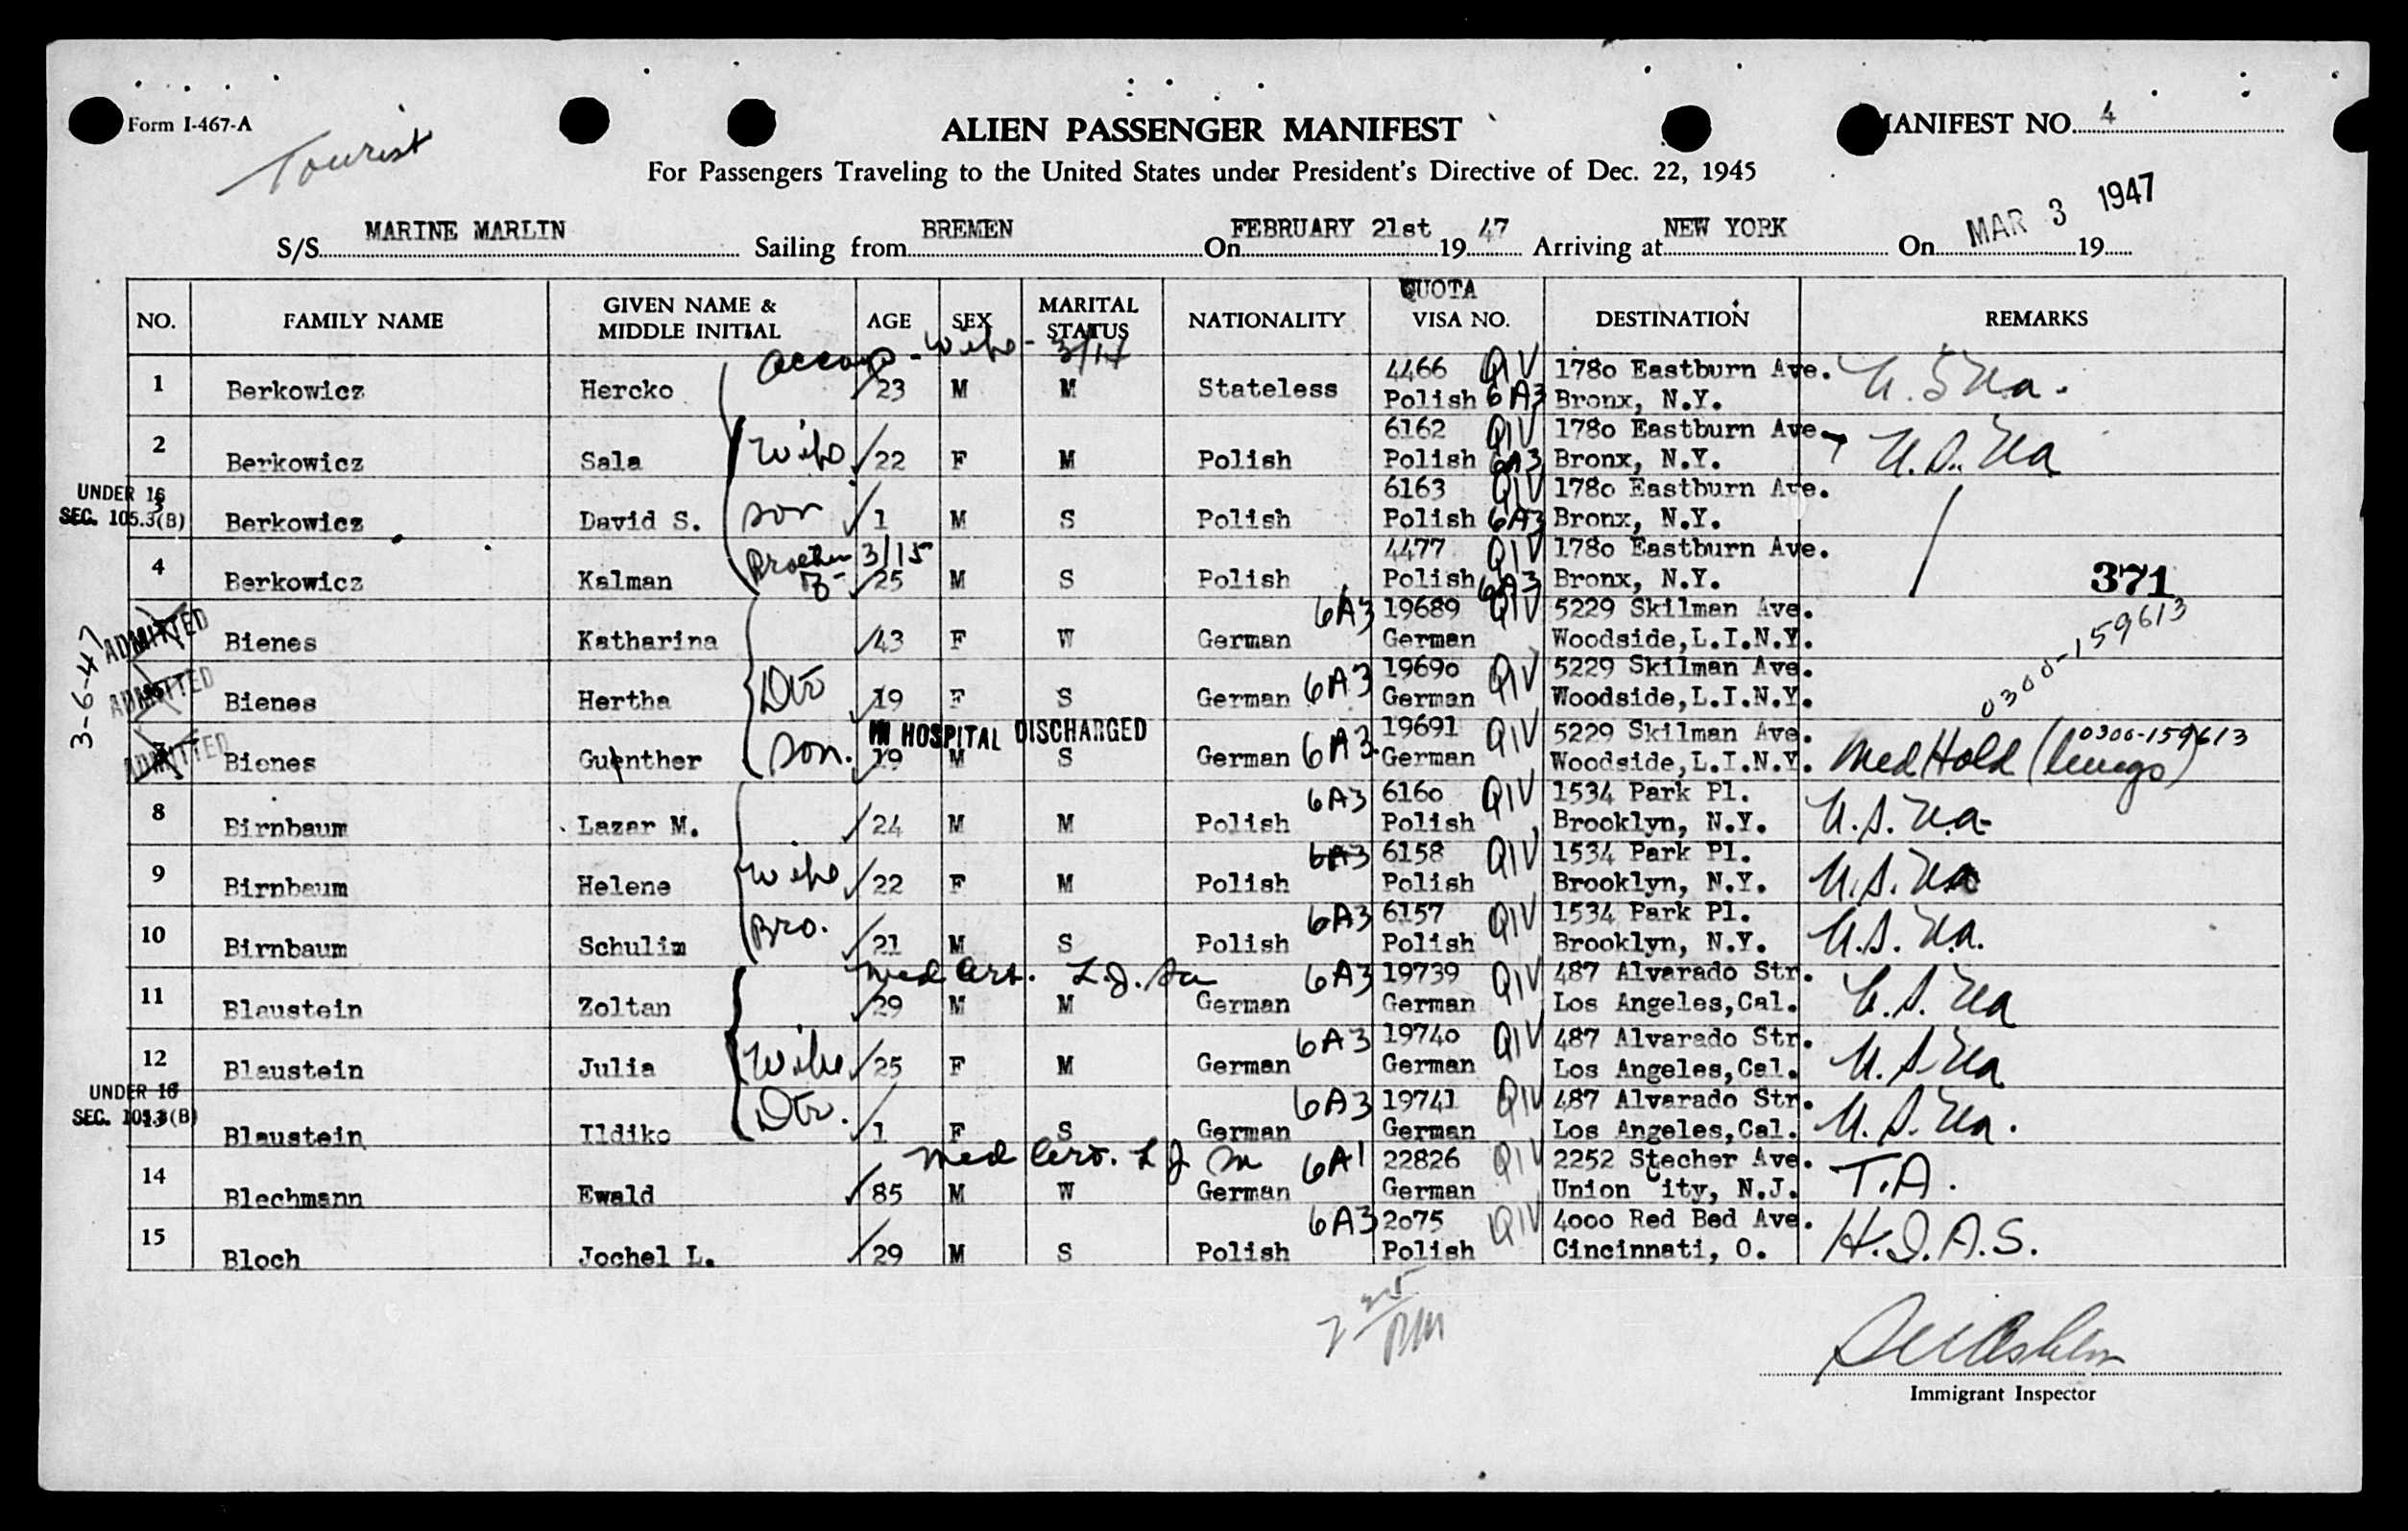 Form I-467-A
Tourist
ALIEN PASSENGER MANIFEST
MANIFEST NO. 4
For Passengers Traveling to the United States under President's Directive of Dec. 22, 1945
S/S MARINE MARLIN Sailing from BREMEN On FEBRUARY 21st 19 47 Arriving at NEW YORK On MAR 3 1947 19
NO. FAMILY NAME GIVEN NAME & MIDDLE INITIAL AGE SEX MARITAL STATUS NATIONALITY QUOTA VISA NO. DESTINATION REMARKS
accomp - wife - 3/17
1 Berkowicz Hercko 23 M M Stateless 4466 QIV 1780 Eastburn Ave.
Polish 6A3 Bronx, N.Y.
2 Berkowicz Sala wife 22 F M Polish 6162 QIV 1780 Eastburn Ave.
Polish 6A3 Bronx, N.Y.
UNDER 16
SEC. 105.3(B)
3 Berkowicz David S. son 1 M S Polish 6163 QIV 1780 Eastburn Ave.
Polish 6A3 Bronx, N.Y.
4 Berkowicz Kalman Brother 3/15 25 M S Polish 4477 QIV 1780 Eastburn Ave.
Polish 6A3 Bronx, N.Y.
371
3-6-47
ADMITTED Bienes Katharina 43 F W German 6A3 19689 QIV 5229 Skilman Ave.
German Woodside,L.I.N.Y.
0300-159613
ADMITTED Bienes Hertha Dtr 19 F S German 6A3 19690 QIV 5229 Skilman Ave.
German Woodside,L.I.N.Y.
IN HOSPITAL DISCHARGED
ADMITTED Bienes Guenther son. 19 M S German 6A3 19691 QIV 5229 Skilman Ave. 0300-159613
German Woodside,L.I.N.Y. Med Hold (lungs)
8 Birnbaum Lazar M. 24 M M Polish 6A3 6160 QIV 1534 Park Pl.
Polish Brooklyn, N.Y.
9 Birnbaum Helene wife 22 F M Polish 6A3 6158 QIV 1534 Park Pl.
Polish Brooklyn, N.Y.
10 Birnbaum Schulim Bro. 21 M S Polish 6A3 6157 QIV 1534 Park Pl.
Polish Brooklyn, N.Y.
Med Cert.
11 Blaustein Zoltan 29 M M German 6A3 19739 QIV 487 Alvarado Str.
German Los Angeles,Cal.
12 Blaustein Julia wife 25 F M German 6A3 19740 QIV 487 Alvarado Str.
German Los Angeles,Cal.
UNDER 16
SEC. 105.3(B)
13 Blaustein Ildiko Dtr. 1 F S German 6A3 19741 QIV 487 Alvarado Str.
German Los Angeles,Cal.
Med Cert.
14 Blechmann Ewald 85 M W German 6A1 22826 QIV 2252 Stecher Ave. T.A.
German Union City, N.J.
15 Bloch Jochel L. 29 M S Polish 6A3 2075 QIV 4000 Red Bed Ave. H.I.A.S.
Polish Cincinnati, O.
Immigrant Inspector